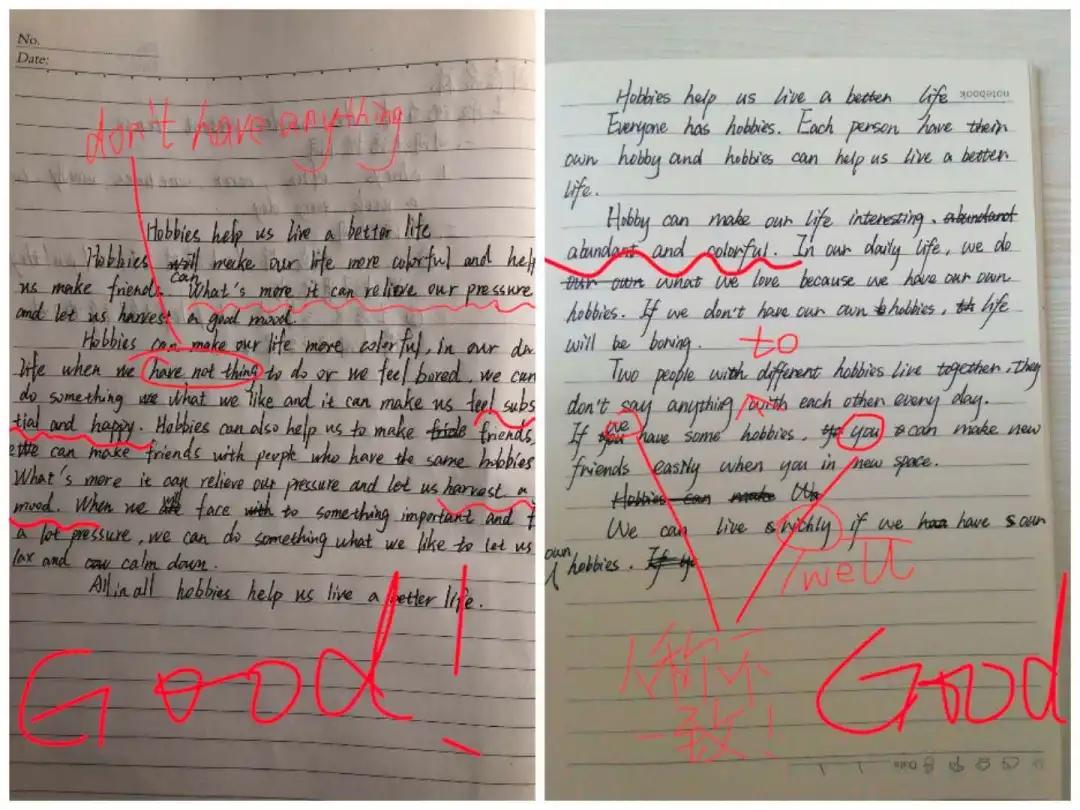 No.
Date:
don't have anything
Hobbies help us live a better life
Hobbies can make our life more colorful and help
us make friends. What's more it can relieve our pressure
and let us harvest a good mood.
Hobbies can make our life more colorful, in our
life when we have not thing to do or we feel bored, we can
do something what we like and it can make us feel subs
tial and happy. Hobbies can also help us to make friends,
We can make friends with people who have the same hobbies
What's more it can relieve our pressure and let us harvest a
mood. When we face to something important and
a lot pressure, we can do something what we like to let us
lax and calm down.
All in all hobbies help us live a better life.
Good!
notebook
Hobbies help us live a better life
Everyone has hobbies. Each person have their
own hobby and hobbies can help us live a better
life.
Hobby can make our life interesting, abundant
abundant and colorful. In our daily life, we do
our own what we love because we have our own
hobbies. If we don't have our own hobbies, life
will be boring.
to
Two people with different hobbies live together, they
don't say anything with each other every day.
we
If you have some hobbies, you can make new
friends easily when you in new space.
Hobbies can make
We can live richly if we have our
own
hobbies. If
well
人称不
一致!
Good